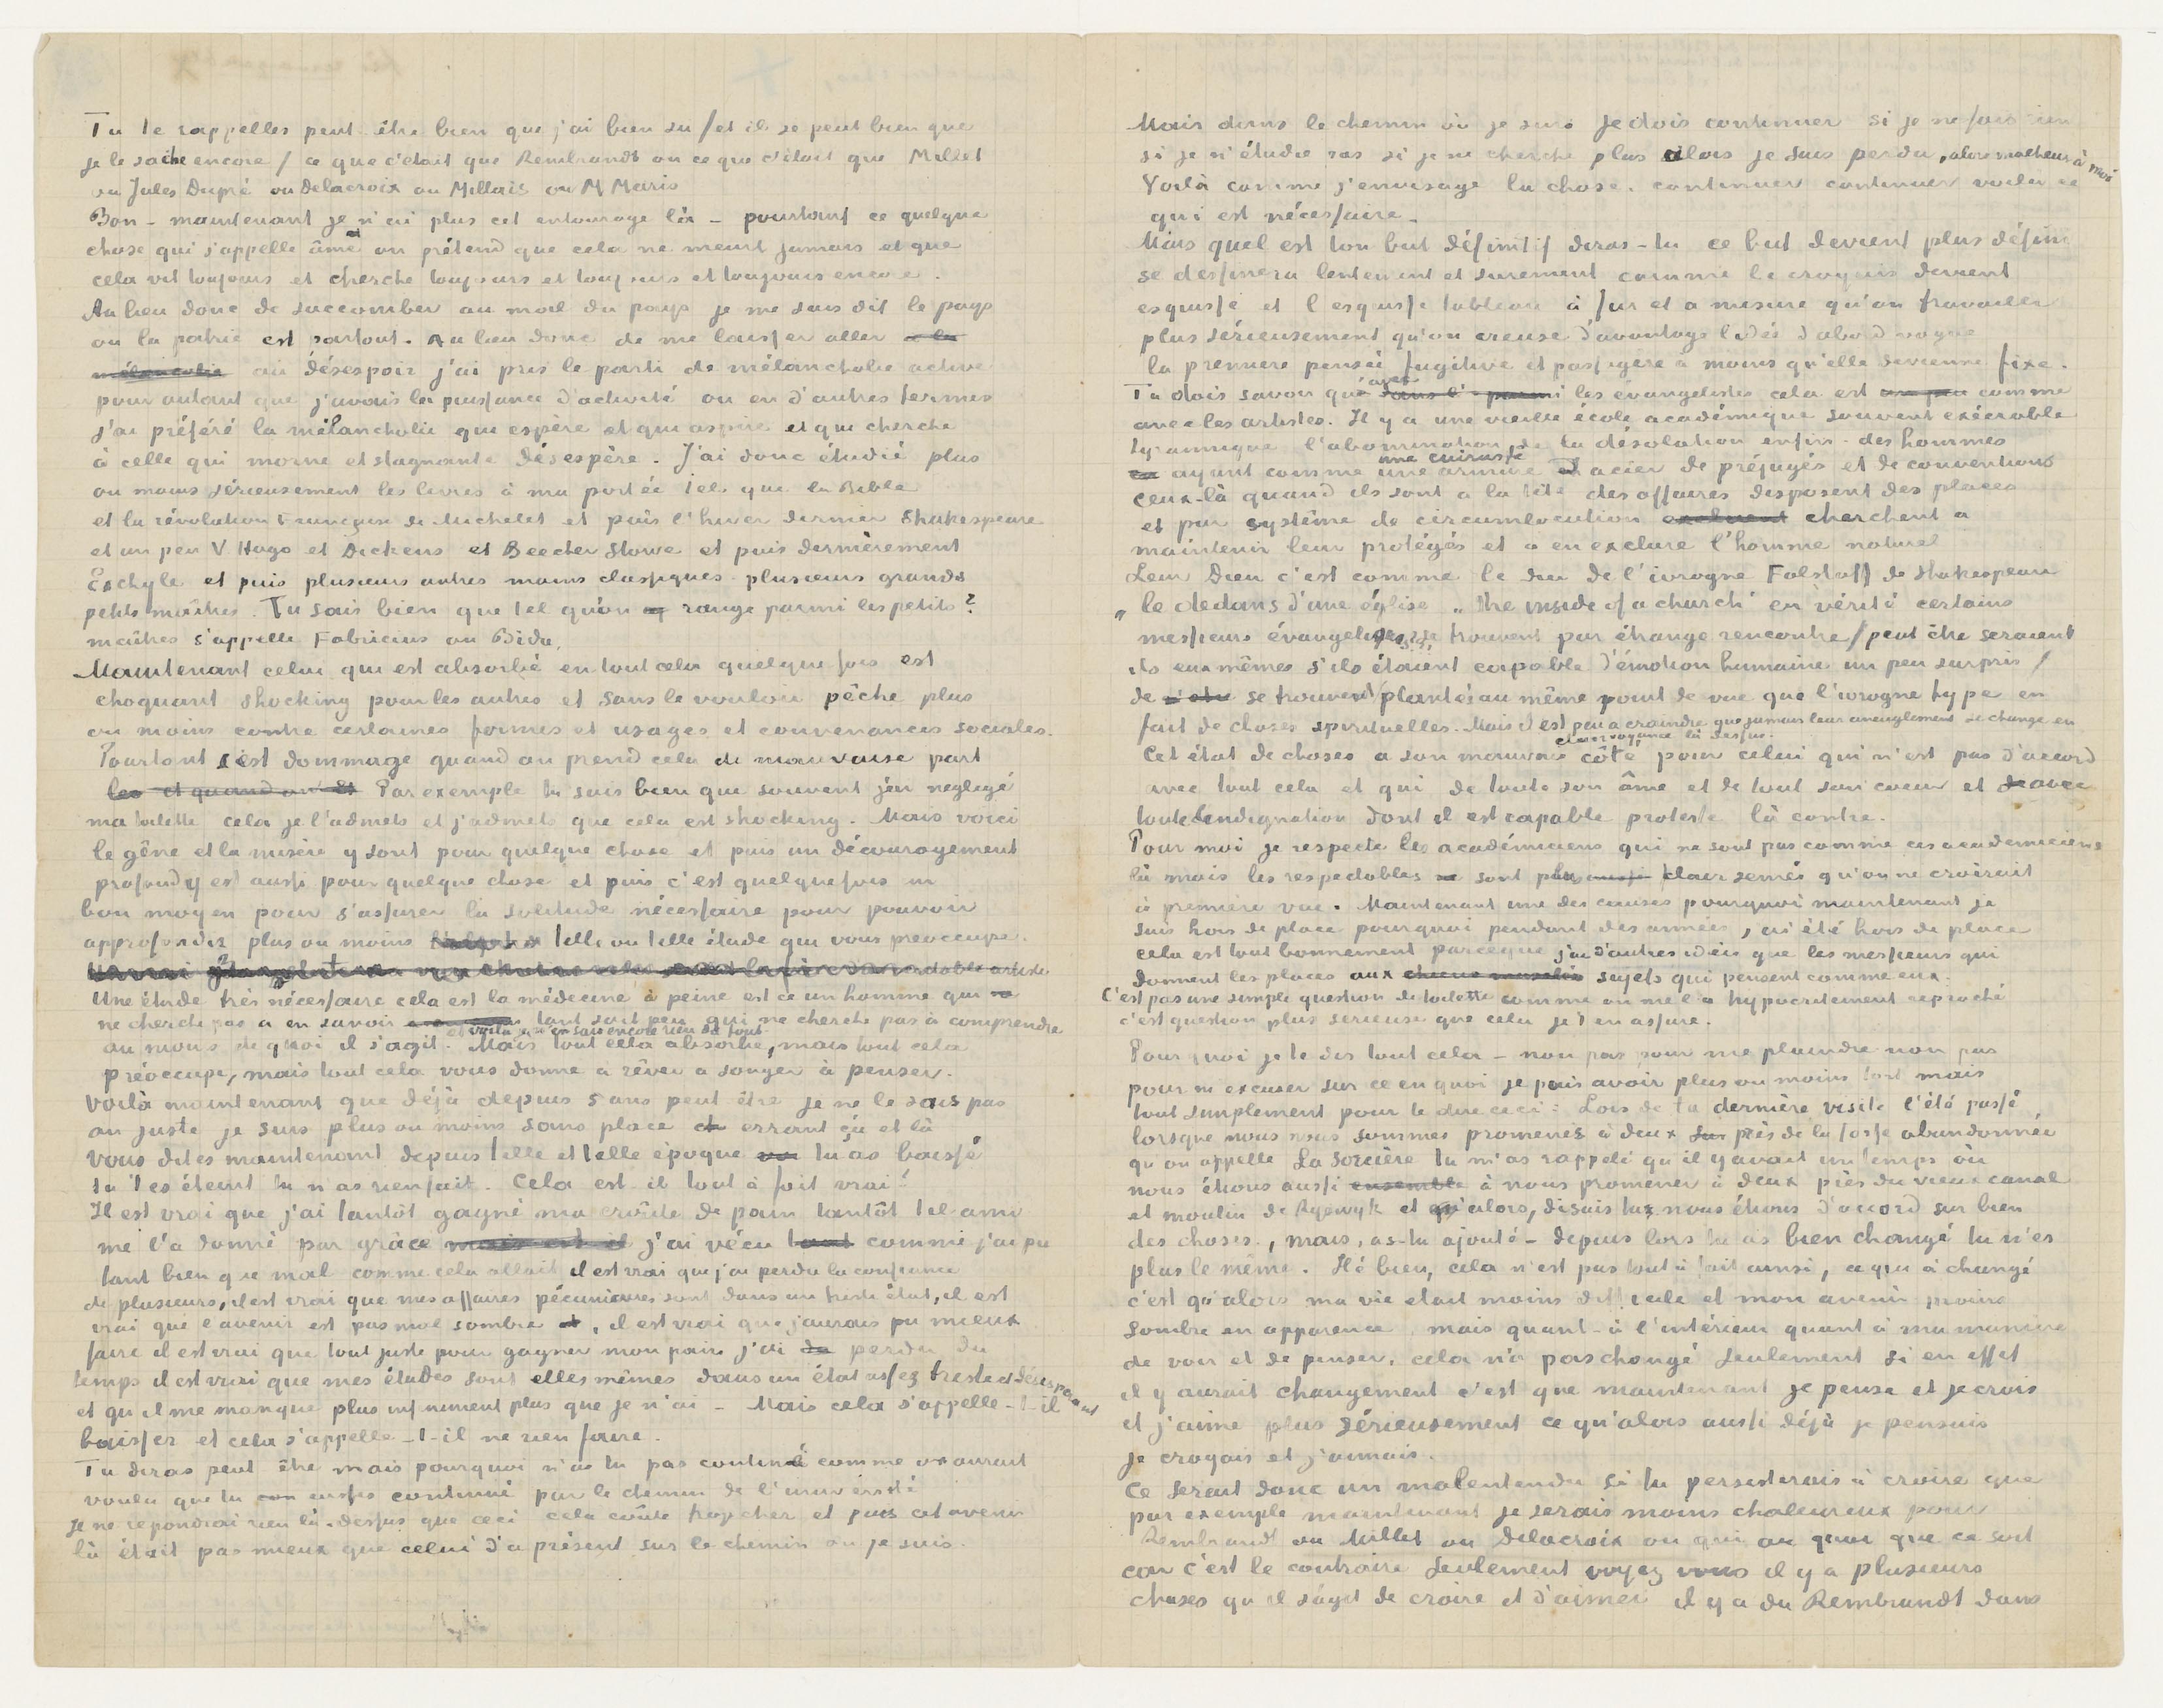 Tu te rappelles peut-être bien que j'ai bien su /et il se peut bien que
je le sache encore/ ce que c'était que Rembrandt ou ce que c'était que Millet
ou Jules Dupré ou Delacroix ou Millais ou M Maris
Bon – maintenant je n'ai plus cet entourage là – pourtant ce quelque
chose qui s'appelle âme on prétend que cela ne meurt jamais et que
cela vit toujours et cherche toujours et toujours et toujours encore.
Au lieu donc de succomber au mal du pays je me suis dit le pays
ou la patrie est partout. Au lieu donc de me laisser aller à la
mélancolie au désespoir j'ai pris le parti de mélancholie active
pour autant que j'avais la puissance d'activité ou en d'autres termes
j'ai préféré la mélancholie qui espère et qui aspire et qui cherche
à celle qui morne et stagnante désespère. J'ai donc étudié plus
ou moins sérieusement les livres à ma portée tels que la Bible
et la révolution Française de Michelet et puis l'hiver dernier Shakespeare
et un peu V. Hugo et Dickens et Beecher Stowe et puis dernièrement
Eschyle et puis plusieurs autres moins classiques plusieurs grands
petits maîtres. Tu sais bien que tel qu'on range parmi les petits?
maîtres s'appelle Fabricius ou Bida.
Maintenant celui qui est absorbé en tout cela quelquefois est
choquant shocking pour les autres et sans le vouloir pêche plus
ou moins contre certaines formes et usages et convenances sociales.
Pourtant c'est dommage quand on prend cela de mauvaise part
Par exemple tu sais bien que souvent j'ai négligé
ma toilette cela je l'admets et j'admets que cela est shocking. Mais voici
le gêne et la misère y sont pour quelque chose et puis un découragement
profond y est aussi pour quelque chose et puis c'est quelquefois un
bon moyen pour s'assurer la solitude nécessaire pour pouvoir
approfondir plus ou moins telle ou telle étude qui vous préoccupe.
Une étude très nécessaire cela est la médecine à peine est ce un homme qui
ne cherche pas a en savoir tant soit peu qui ne cherche pas à comprendre
et voilà je n'en sais encore rien du tout.
au moins de quoi il s'agit. Mais tout cela absorbe, mais tout cela
préoccupe, mais tout cela vous donne a rêver a songer à penser.
Voilà maintenant que déjà depuis 5 ans peut être je ne le sais pas
au juste je suis plus ou moins sans place errant çà et là
vous dites maintenant depuis telle et telle époque tu as baissé
tu t'es éteint tu n'as rien fait. Cela est-il tout à fait vrai?
Il est vrai que j'ai tantôt gagné ma croûte de pain tantôt tel ami
me l'a donné par grâce j'ai vécu comme j'ai pu
tant bien que mal comme cela allait il est vrai que j'ai perdu la confiance
de plusieurs, il est vrai que mes affaires pécuniaires sont dans un triste état, il est
vrai que l'avenir est pas mal sombre, il est vrai que j'aurais pu mieux
faire il est vrai que tout juste pour gagner mon pain j'ai perdu du
temps il est vrai que mes études sont elles mêmes dans un état assez triste et désespérant
et qu'il me manque plus infiniment plus que je n'ai – Mais cela s'appelle-t-il
baisser et cela s'appelle-t-il ne rien faire.
Tu diras peut être mais pourquoi n'as tu pas continué comme on aurait
voulu que tu eusses continué par le chemin de l'université
Je ne repondrai rien là-dessus que ceci cela coûte trop cher et puis cet avenir
là était pas mieux que celui d'a présent sur le chemin ou je suis.
Mais dans le chemin où je suis je dois continuer si je ne fais rien
si je n'étudie pas si je ne cherche plus alors je suis perdu, alors malheur à moi
Voilà comme j'envisage la chose. continuer continuer voilà ce
qui est nécessaire –
Mais quel est ton but définitif diras-tu ce but devient plus défini
se dessinera lentement et surement comme le croquis devient
esquisse et l'esquisse tableau à fur et a mesure qu'on travaille
plus sérieusement qu'on creuse d'avantage l'idée d'abord vague
la premiere pensée fugitive et passagère a moins qu'elle devienne fixe.
Tu dois savoir que avec les évangelistes cela est comme
avec les artistes. Il y a une vieille école académique souvent exécrable
tyrannique l'abomination de la désolation enfin – des hommes
ayant comme une armure une cuirasse d'acier de préjugés et de conventions
ceux-là quand ils sont a la tête des affaires disposent des places
et par système de circumlocution excluent cherchent a
maintenir leur protégés et a en exclure l'homme naturel
Leur Dieu c'est comme le dieu de l'ivrogne Falstaff de Shakespeare
"le dedans d'une église" "the inside of a church" en vérité certains
messieurs évangeliques se trouvent par étrange rencontre /peut être seraient
ils eux mêmes s'ils étaient capable d'émotion humaine un peu surpris/
de se trouver/ plantés au même point de vue que l'ivrogne type en
fait de choses spirituelles. Mais il est peu a craindre que jamais leur aveuglement se change en
clairvoyance là dessus.
Cet état de choses a son mauvais côté pour celui qui n'est pas d'accord
avec tout cela et qui de toute son âme et de tout son coeur et avec
toute l'indignation dont il est capable proteste là contre.
Pour moi je respecte les académiciens qui ne sont pas comme ces academiciens
là mais les respectables sont plus clair semés qu'on ne croirait
à première vue. Maintenant une des causes pourquoi maintenant je
suis hors de place pourquoi pendant des années j'ai été hors de place
cela est tout bonnement parceque j'ai d'autres idées que les messieurs qui
donnent les places aux sujets qui pensent comme eux.
C'est pas une simple question de toilette comme on me l'a hypocritement reproché
c'est question plus serieuse que cela je t'en assure.
Pourquoi je te dis tout cela – non pas pour me plaindre non pas
pour m'excuser sur ce en quoi je puis avoir plus ou moins tort mais
tout simplement pour te dire ceci: Lors de ta dernière visite l'été passé
lorsque nous nous sommes promenés à deux près de la fosse abandonnée
qu'on appelle La Sorcière tu m'as rappelé qu'il y avait un temps où
nous étions aussi ensemble à nous promener à deux près du vieux canal
et moulin de Ryswyk et qu'alors, disais tu, nous étions d'accord sur bien
des choses, mais, as-tu ajouté – depuis lors tu as bien changé tu n'es
plus le même. Hé bien, cela n'est pas tout à fait ainsi, ce qui à changé
c'est qu'alors ma vie était moins difficile et mon avenir moins
sombre en apparence, mais quant-à l'intérieur quant à ma manière
de voir et de penser, cela n'a pas changé seulement si en effet
il y aurait changement c'est que maintenant je pense et je crois
et j'aime plus sérieusement ce qu'alors aussi déjà je pensais
je croyais et j'aimais.
Ce serait donc un malentendu si tu persisterais à croire que
par exemple maintenant je serais moins chaleureux pour
Rembrandt ou Millet ou Delacroix ou qui ou quoi que ce soit
car c'est le contraire seulement voyez vous il y a plusieurs
choses qu'il s'agit de croire et d'aimer il y a du Rembrandt dans